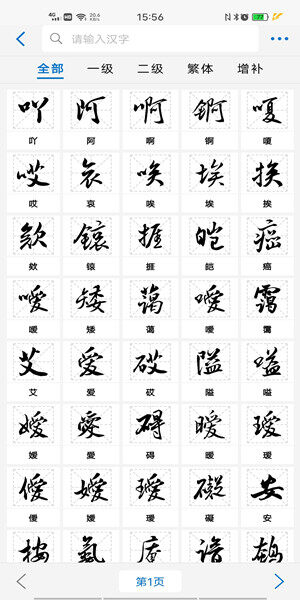 15:56
请输入汉字
全部 一级 二级 繁体 增补
吖 阿 啊 锕 嗄
吖 阿 啊 锕 嗄
哎 哀 唉 埃 挨
哎 哀 唉 埃 挨
欸 锿 捱 皑 癌
欸 锿 捱 皑 癌
嗳 矮 蔼 噯 霭
嗳 矮 蔼 噯 霭
艾 爱 砹 隘 嗌
艾 爱 砹 隘 嗌
嫒 愛 碍 暧 瑷
嫒 愛 碍 暧 瑷
僾 嬡 璦 礙 安
僾 嬡 璦 礙 安
桉 氨 庵 谙 鹌
第1页